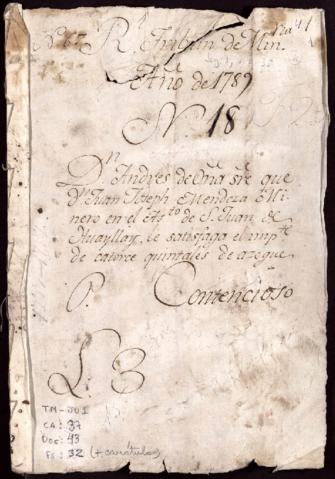 Nº 67 R. Tribun de Min.
Año de 1789
Nº 18
Dn Andres de Oña sre que
Dn Juan Joseph Mendoza Mi
nero en el Asto de S. Juan de
Huayllay, le satisfaga el impte
de catorce quintales de azogue
P. Contencioso
L. 3
TM-JU 1
CA: 37
DOC: 43
FS: 32 (+ carátula)